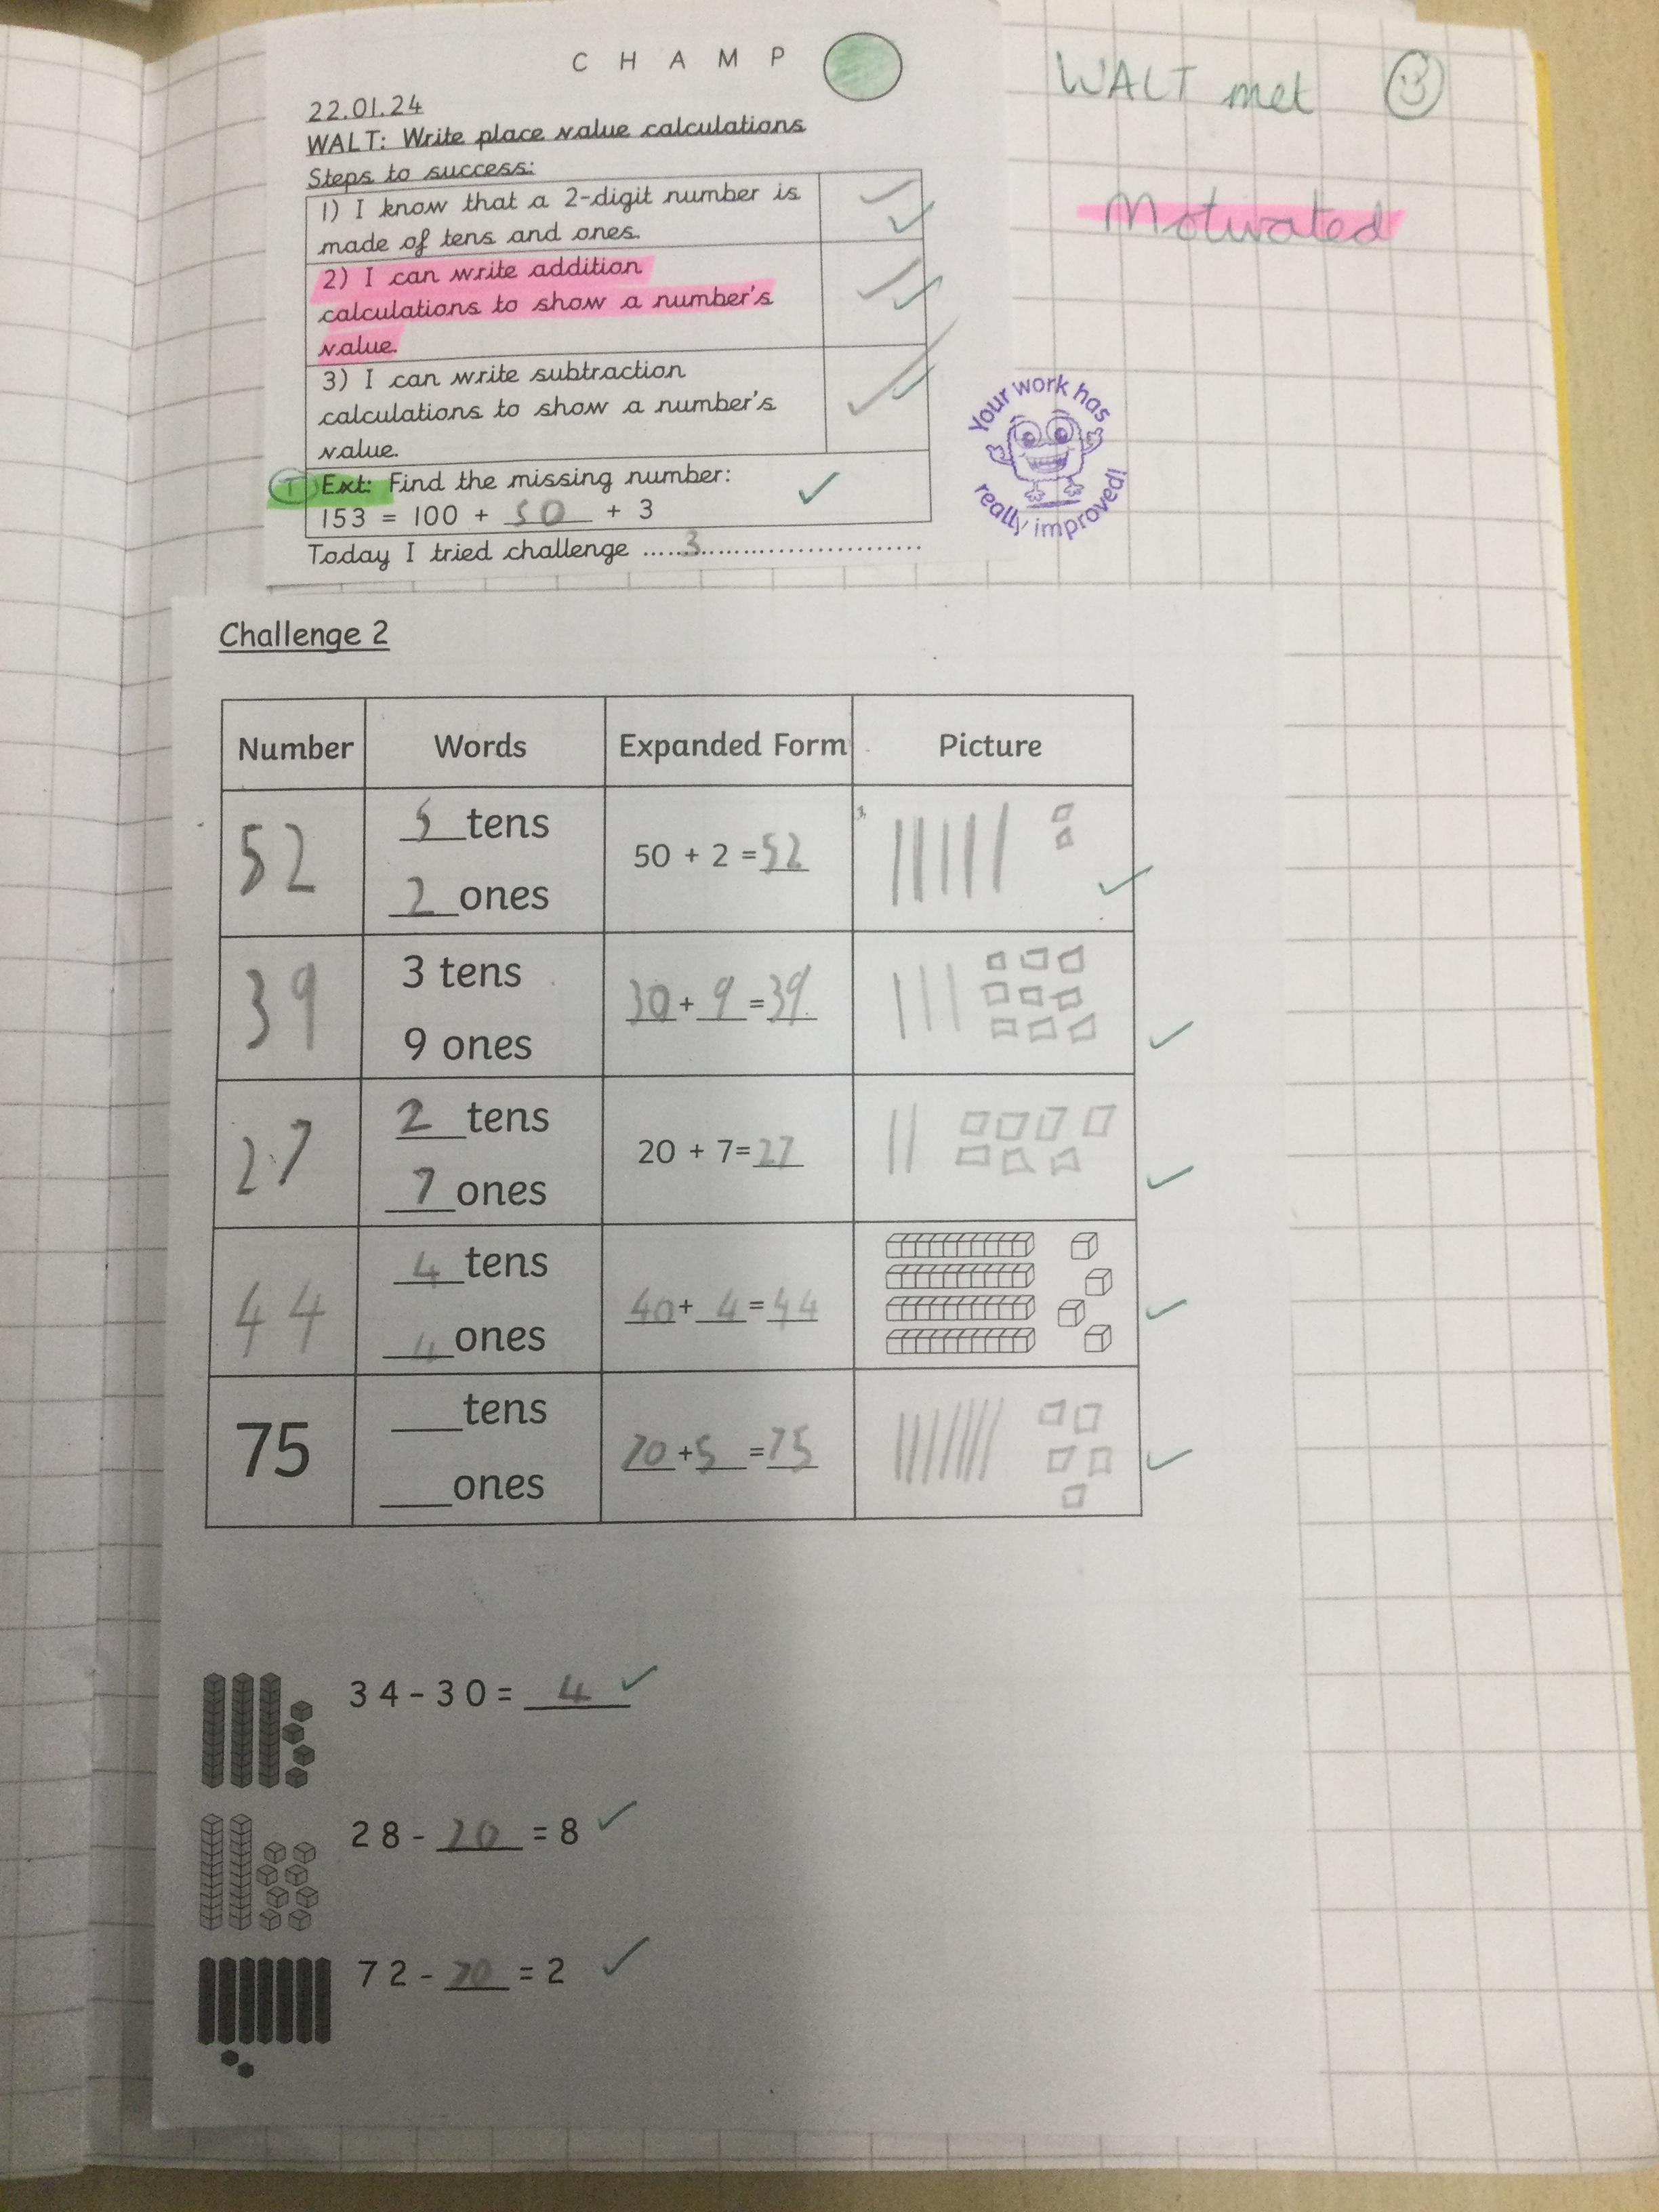 C H A M P
WALT met
22.01.24
WALT: Write place value calculations
Motivated
Steps to success:
1) I know that a 2-digit number is
made of tens and ones.
2) I can write addition
calculations to show a number's
value.
3) I can write subtraction
calculations to show a number's
value.
Your work has
really improved!
T Ext: Find the missing number:
153 = 100 + 50 + 3
Today I tried challenge ......3..............................
Challenge 2
Number Words Expanded Form Picture
52 5 tens 50 + 2 = 52
2 ones
39 3 tens 30 + 9 = 39
9 ones
27 2 tens 20 + 7 = 27
7 ones
44 4 tens 40 + 4 = 44
4 ones
75 ___tens 70 + 5 = 75
___ones
34 - 30 = 4
28 - 20 = 8
72 - 70 = 2